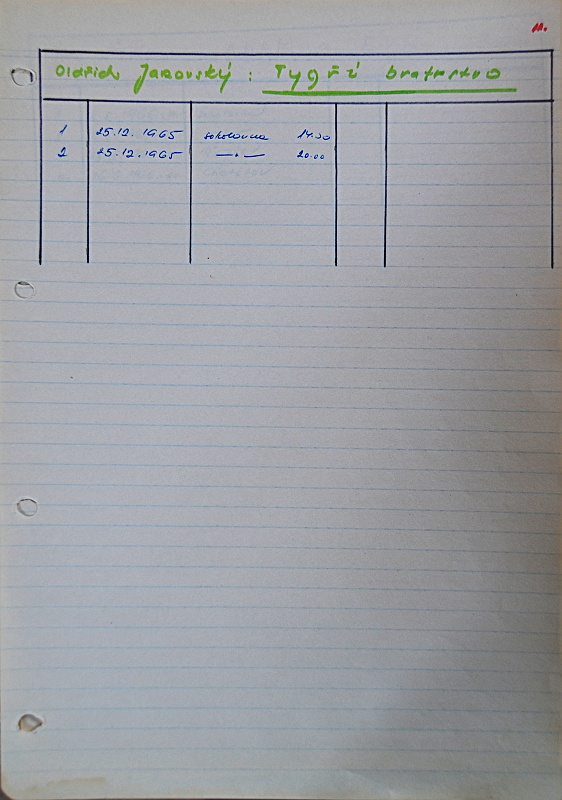 11.
Oldřich Janovský: Tygří bratrstvo
1 25.12.1965 sokolovna 14.00
2 25.12.1965 —〃— 20.00